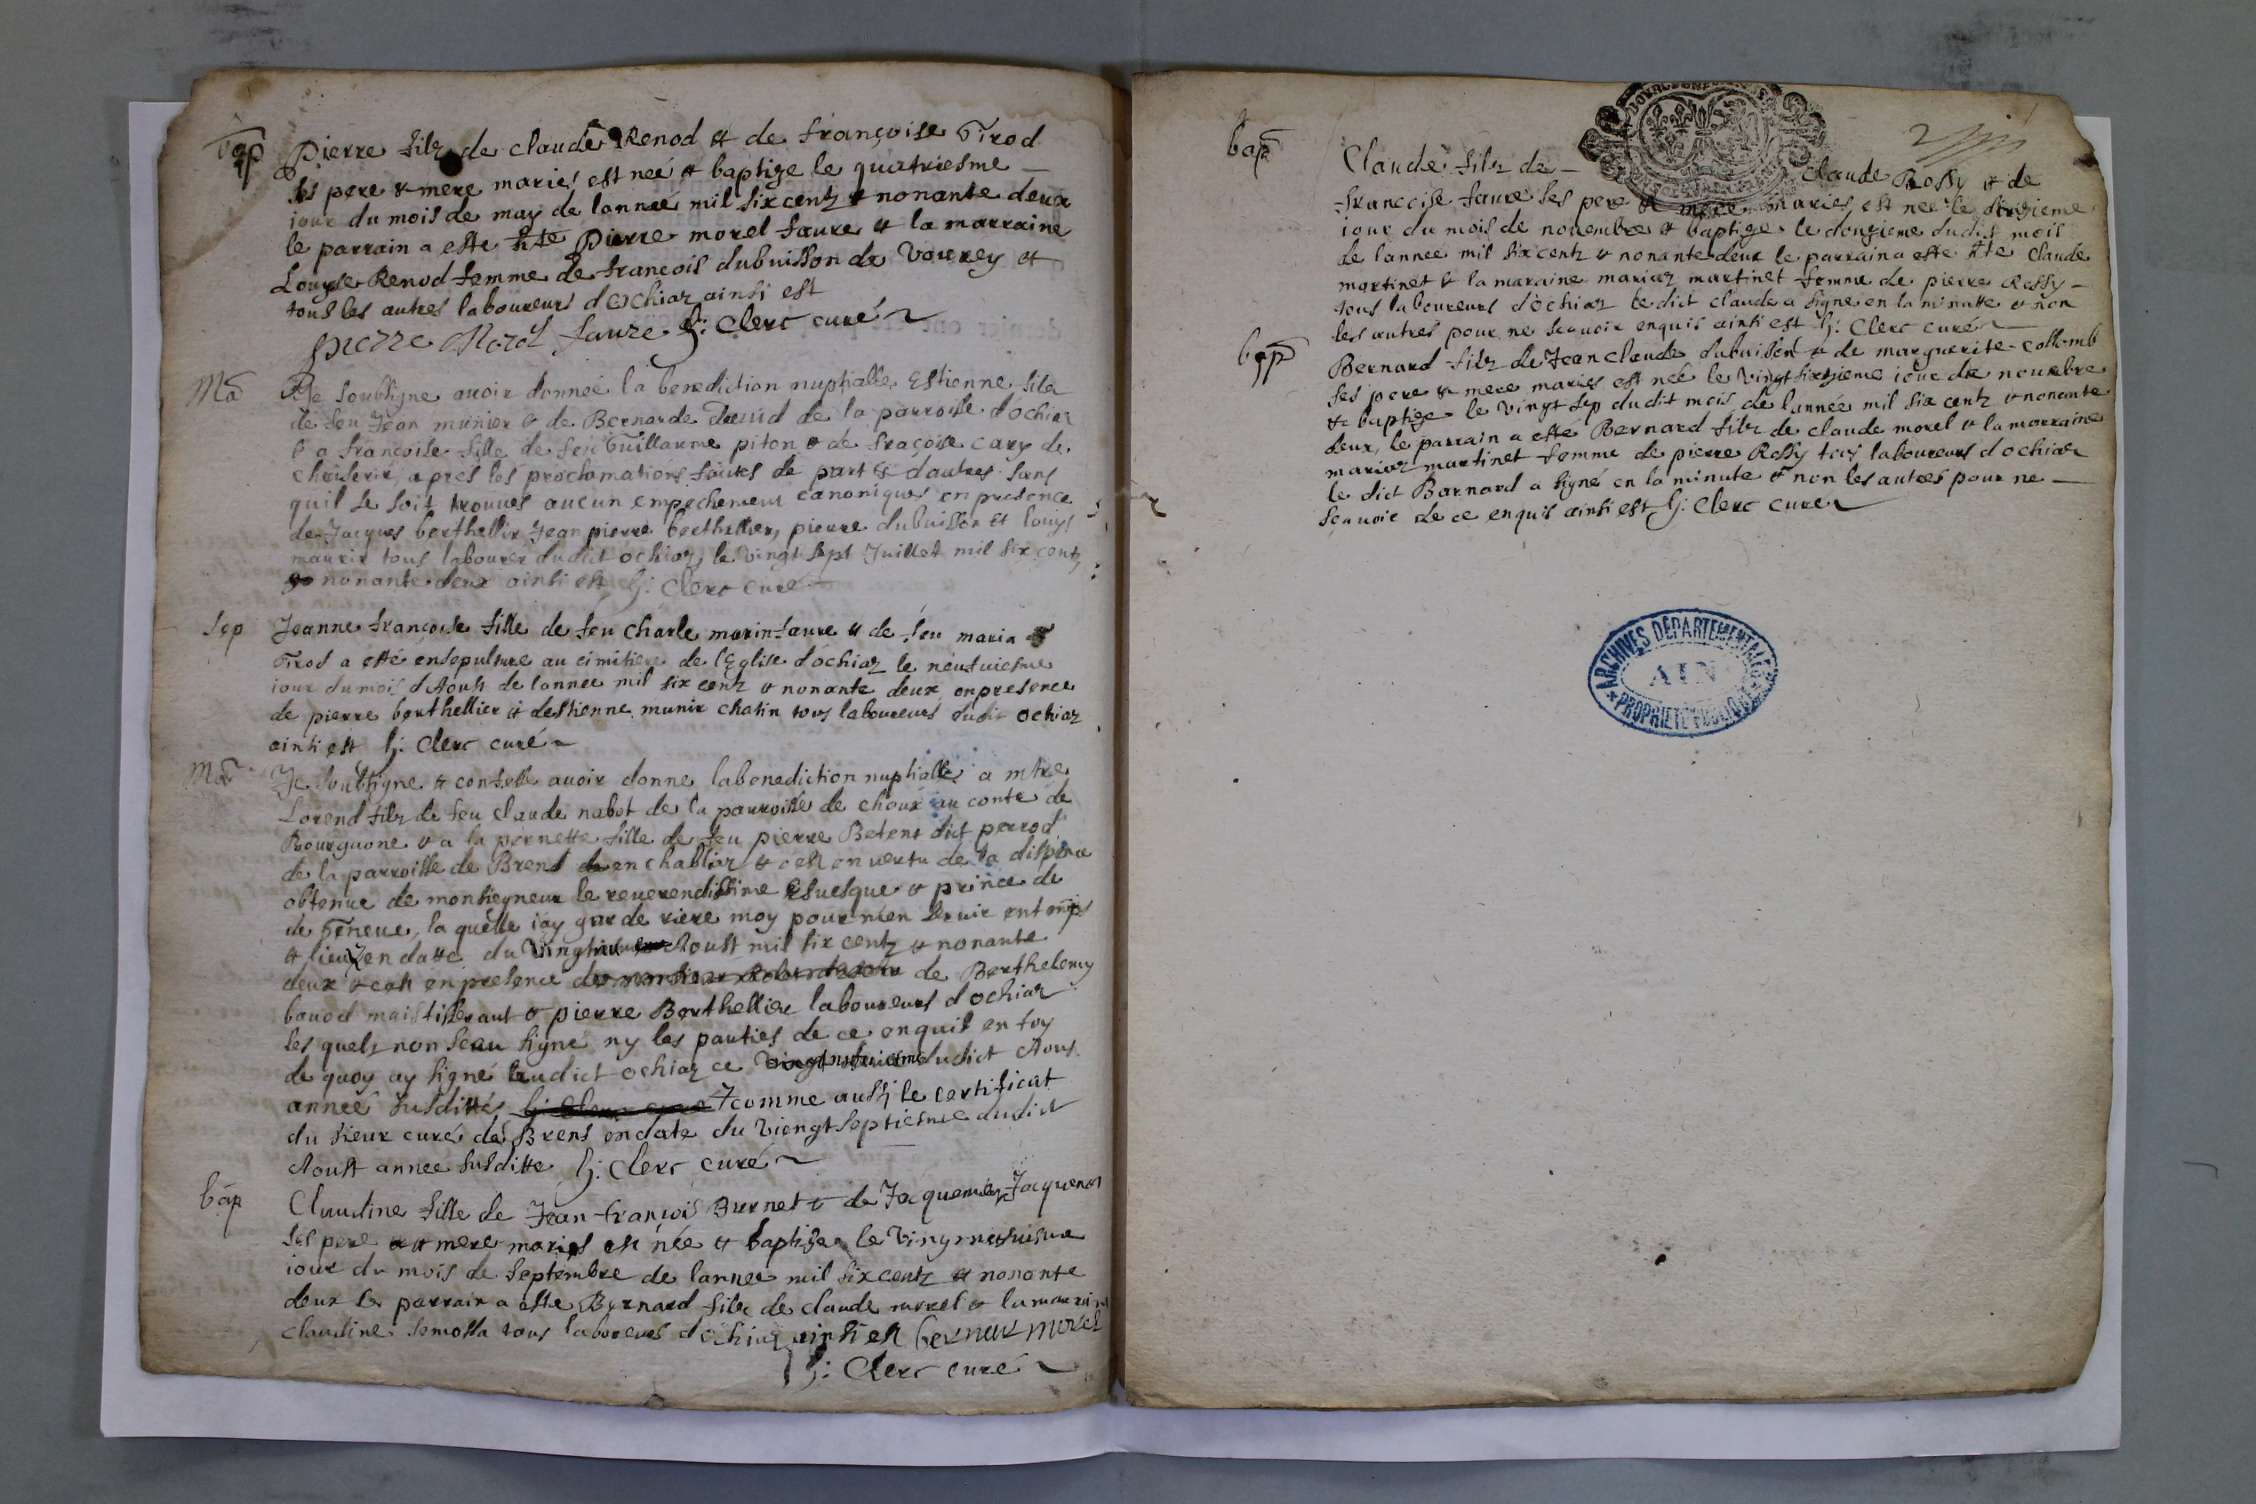 bap
Pierre filz de claude Renod et de françoise Tirod
ses pere & mere maries est neé et baptize le quatriesme
iour du mois de may de lanneé mil six centz & nonante deux
le parrain a este hte Pierre morel faure et la marraine
Louyse Renod femme de francois dubuisson de vourey et
tous les autres laboureurs dochiaz ainsi est
pierre Morel faure h: Clerc curé
Ma
Je soubsigne auoir donneé la benediction nuptialle Estienne filz
de feu Jean munier & de Bernarde de la parroisse dochiaz
& a francoise fille de feu Guillaume piton & de fraçoise cary de
apres les proclamations faites de part & dautres sans
quil se soit trouues aucun empechement canoniques en presence
de Jacques berthellier Jean pierre berthellier, pierre dubuisson et louys
maurir tous labourer dudict ochiaz, le vingt sept Juillet mil six centz
nonante deux ainsi est h: Clerc curé
Sep
Jeanne francoise fille de feu charle marin faure & de feu maria
Tirod a esté ensepulture au cimitiere de lEglise dochiaz le neufuiesme
iour du mois dAoust de lannee mil six centz & nonante deux en presence
de pierre berthellier & destienne munir chatin tous laboureurs dudit ochiaz
ainsi est h: Clerc curé
Ma
Je soubsigne & confesse auoir donne la benediction nuptialle a mtre
Lorend filz de feu claude nabot de la parroisse de choux au conte de
Bourguone & a la pernette fille de feu pierre Betent dict perrod
de la parroisse de Brens en chablaiz & cest en vertu de la dispence
obtenue de monseigneur le reuerendissime Esuesque & prince de
de Geneue, la quelle iay garde riere moy pour men seruir en temps
& lieuz en datte du Aoust mil six centz & nonante
deux & cest en presence de Berthelemy
bauod mais tisserant & pierre Berthellier laboureurs dochiaz
les quelz non sceau signe ny les parties de ce enquis en foy
de quoy ay signé audict ochiaz ce dudict Aous
anneé susdittes comme aussi le certificat
du sieur curé de Brens en date du viengt septiesme dudict
Aoust annee susditte h: Clerc curé
bap
Claudine fille de Jean francois Burnet & de Jacquemaz Jacquenod
ses pere & mere maries est neé et baptizea le vingt neufuiesme
iour du mois de septembre de lannee mil six centz & nonante
deux le parrain a este Bernard filz de claude morel & la marraine
claudine semossa tous laboureurs dochiaz ainsi est bernar morel
h: Clerc curé
bap
Claude filz de Claude Rossy & de
francoise faure ses pere & mere maries est neé le
iour du mois de nouembre & baptize le douzieme dudit mois
de lanneé mil six centz & nonante deux le parrain a este hte claude
martinet & la maraine mariaz martinet femme de pierre Rossy
tous laboureurs dochiaz le dict claude a signe en la minutte & non
les autres pour ne scauoir enquis ainsi est h: Clerc curé
bap
Bernard filz de Jean claude dubuison & de marguerite collomb
ses pere & mere maries est neé le vingt sixzieme iour de nouembre
& baptize le vingt sep dudit mois de lanneé mil six centz & nonante
deux, le parrain a esté Bernard filz de claude morel & la marraine
mariaz martinet femme de pierre Rossy tous laboureurs dochiaz
le dict Barnard a signé en la minute & non les autres pour ne
scauoir de ce enquis ainsi est h: Clerc curé
ARCHIVES DÉPARTEMENTALES
AIN
PROPRIÉTÉ PUBLIQUE